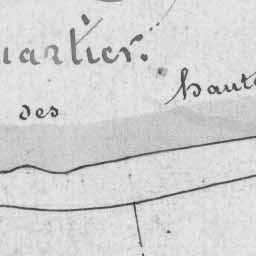 uartier.
des haut